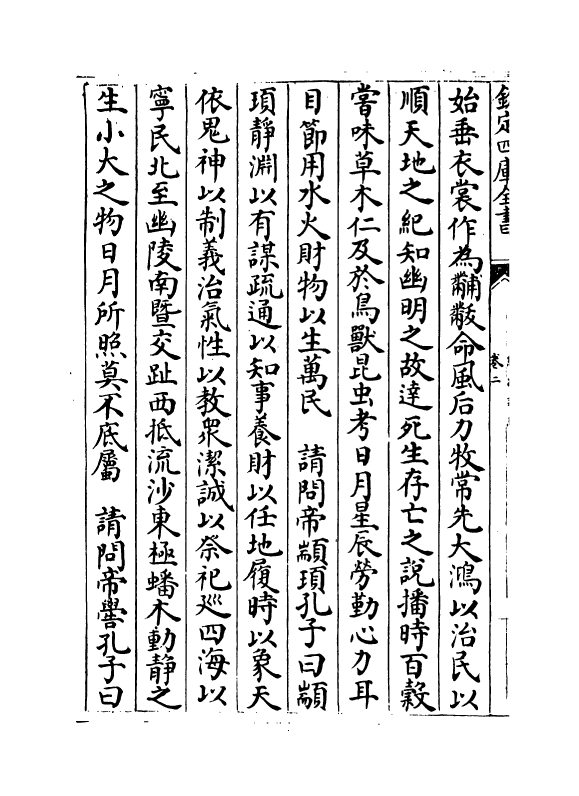 欽定四庫全書
卷二
始垂衣裳作為黼黻命風后力牧常先大鴻以治民以
順天地之紀知幽明之故達死生存亡之說播時百穀
嘗味草木仁及於鳥獸昆虫考日月星辰勞勤心力耳
目節用水火財物以生萬民　請問帝顓頊孔子曰顓
頊靜淵以有謀疏通以知事養財以任地履時以象天
依鬼神以制義治氣性以教眾潔誠以祭祀廵四海以
寧民北至幽陵南暨交趾西抵流沙東極蟠木動靜之
生小大之物日月所照莫不底屬　請問帝嚳孔子曰